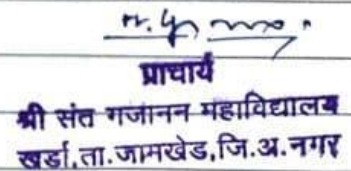 प्राचार्य
श्री संत गजानन महाविद्यालय
खर्डा,ता.जामखेड,जि.अ.नगर